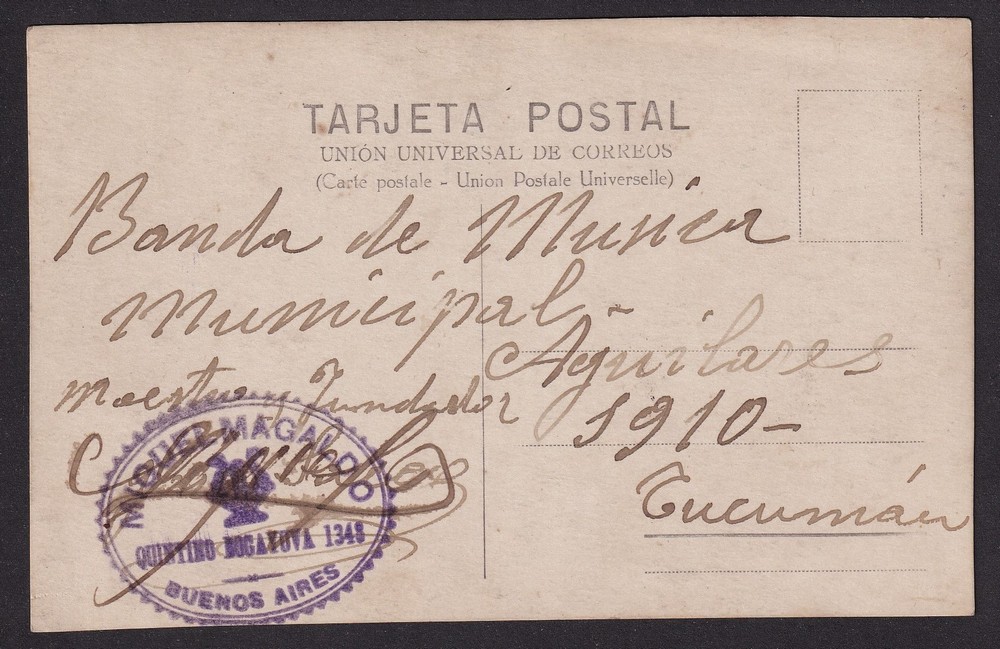 TARJETA POSTAL
UNIÓN UNIVERSAL DE CORREOS
(Carte postale - Union Postale Universelle)
Banda de Musica
Municipal -
Aguilares
Maestro y Fundador
1910 -
Tucumán
MIGUEL MAGALDO
QUINTINO BOCAYUVA 1348
BUENOS AIRES